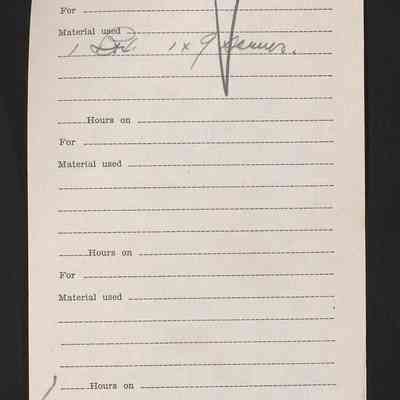 For
Material used
1 1 x 9
Hours on
For
Material used
Hours on
For
Material used
Hours on